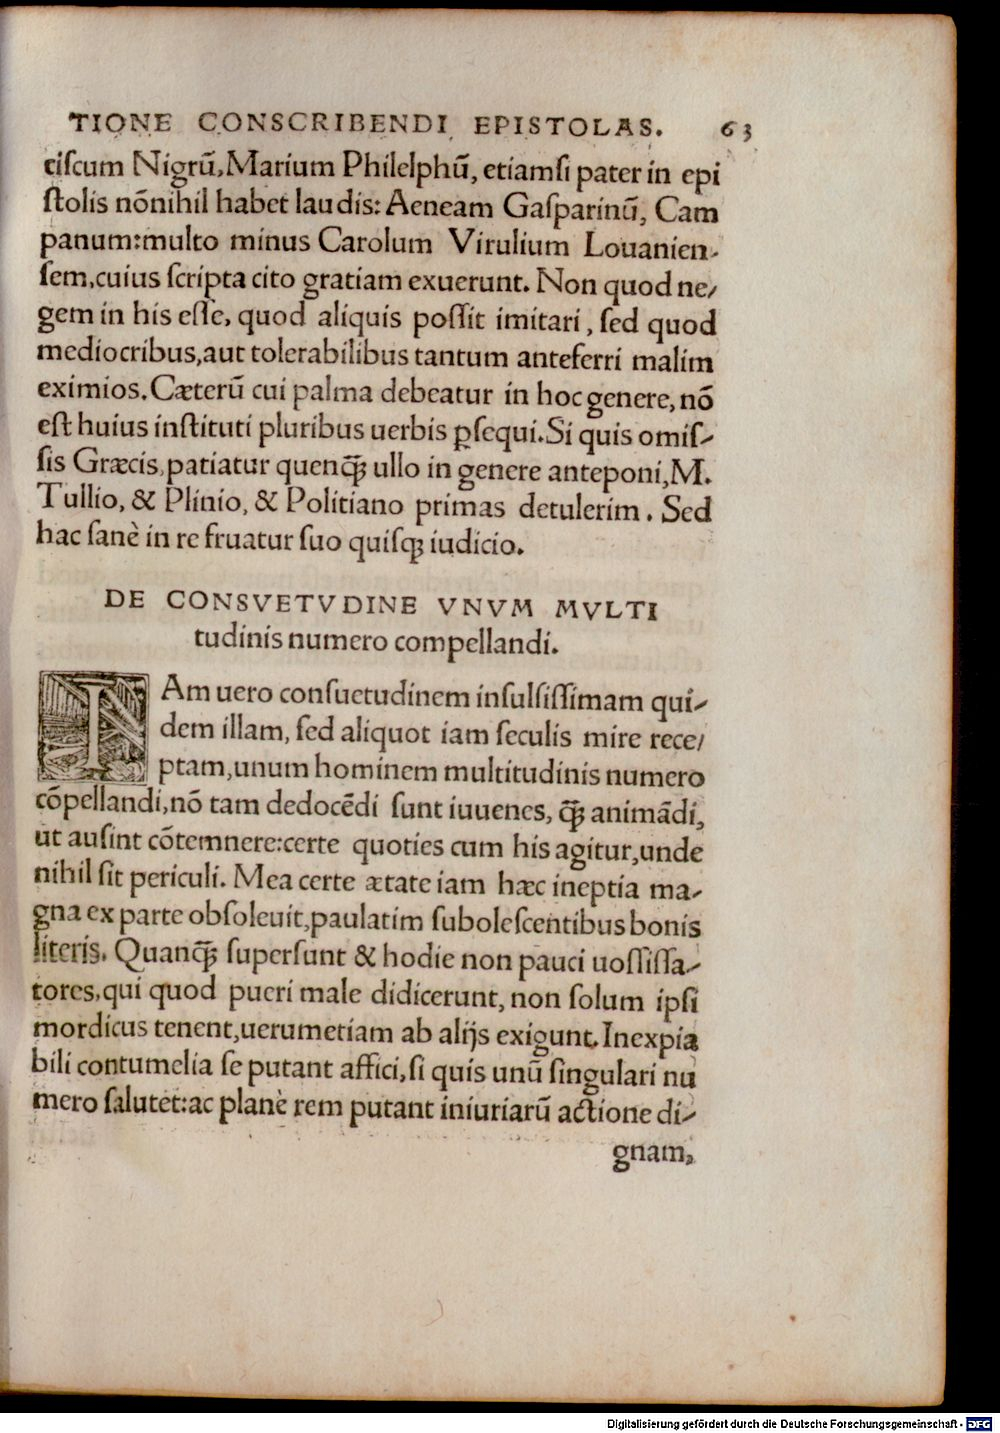 TIONE CONSCRIBENDI EPISTOLAS. 63
ciſcum Nigrū, Marium Philelphū, etiamſi pater in epi
ſtolis nōnihil habet laudis: Aeneam Gaſparinū, Cam
panum: multo minus Carolum Virulium Louanien-
ſem, cuius ſcripta cito gratiam exuerunt. Non quod ne/
gem in his eſſe, quod aliquis poſſit imitari, ſed quod
mediocribus, aut tolerabilibus tantum anteferri malim
eximios. Cæterū cui palma debeatur in hoc genere, nō
eſt huius inſtituti pluribus uerbis ꝑſequi. Si quis omiſ-
ſis Græcis, patiatur quenꝙ̃ ullo in genere anteponi, M.
Tullio, & Plinio, & Politiano primas detulerim. Sed
hac ſanè in re fruatur ſuo quiſꝗ iudicio.
DE CONSVETVDINE VNVM MVLTI
tudinis numero compellandi.
IAm uero conſuetudinem inſulſiſſimam qui-
dem illam, ſed aliquot iam ſeculis mire rece/
ptam, unum hominem multitudinis numero
cōpellandi, nō tam dedocēdi ſunt iuuenes, ꝙ̃ animādi,
ut auſint cōtemnere: certe quoties cum his agitur, unde
nihil ſit periculi. Mea certe ætate iam hæc ineptia ma-
gna ex parte obſoleuit, paulatim ſuboleſcentibus bonis
literis. Quanꝙ̃ ſuperſunt & hodie non pauci uoſſiſſa-
tores, qui quod pueri male didicerunt, non ſolum ipſi
mordicus tenent, uerumetiam ab alijs exigunt. Inexpia
bili contumelia ſe putant affici, ſi quis unū ſingulari nu
mero ſalutet: ac planè rem putant iniuriarū actione di-
gnam,
Digitalisierung gefördert durch die Deutsche Forschungsgemeinschaft - DFG